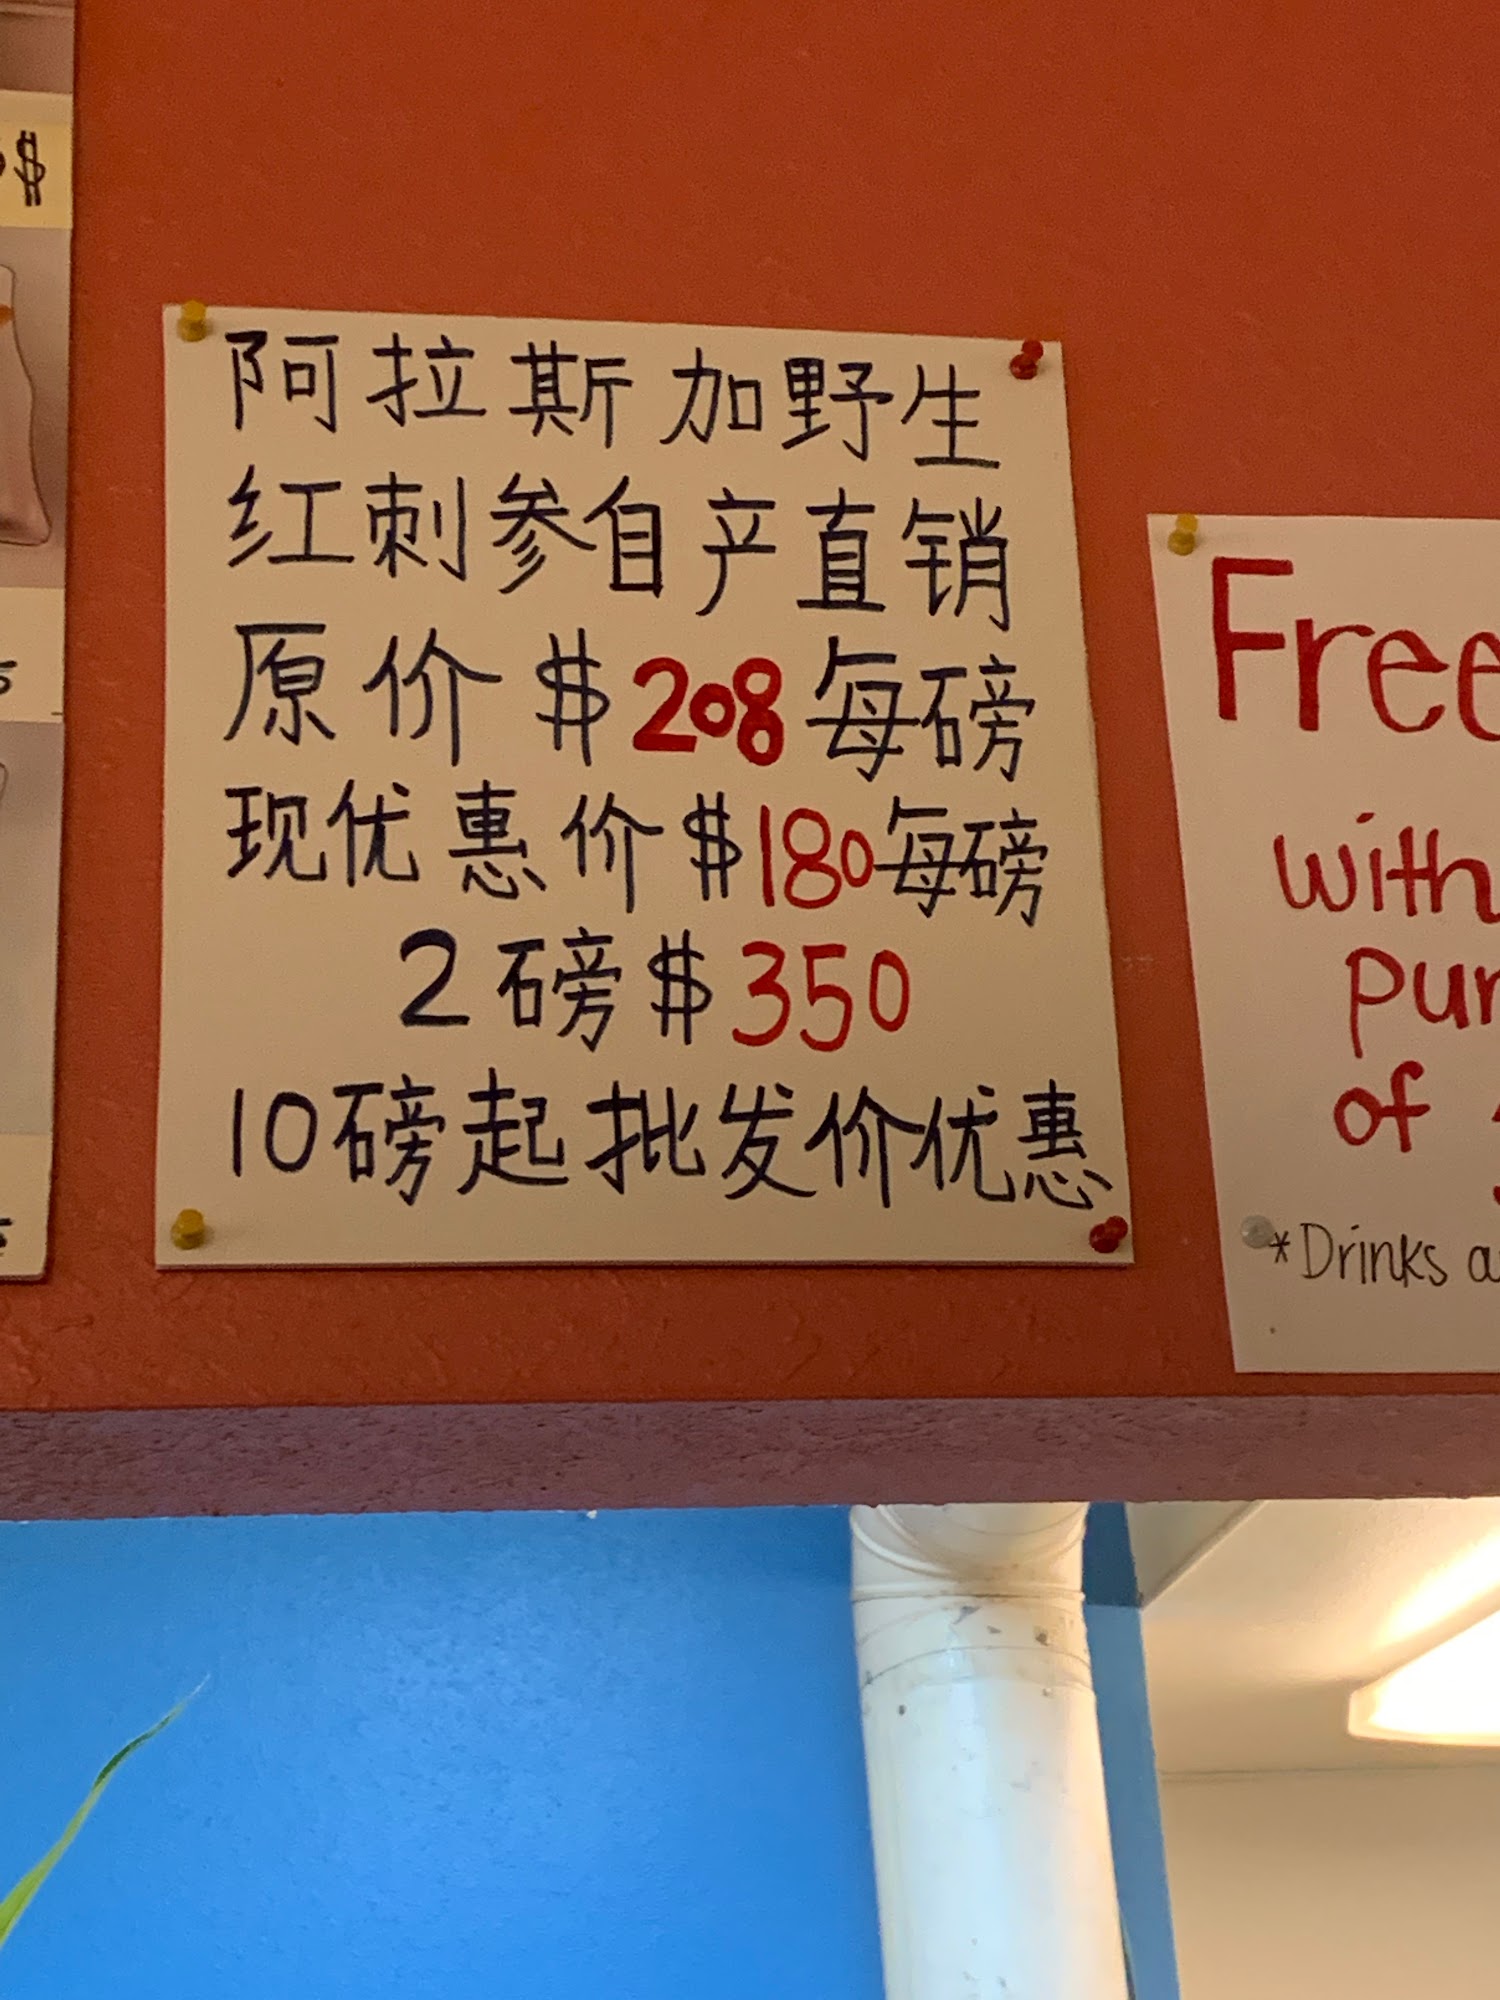 $
阿拉斯加野生
红刺参自产直销
原价$208每磅
现优惠价$180每磅
2磅$350
10磅起批发价优惠
Free
with
pur
of
*Drinks a